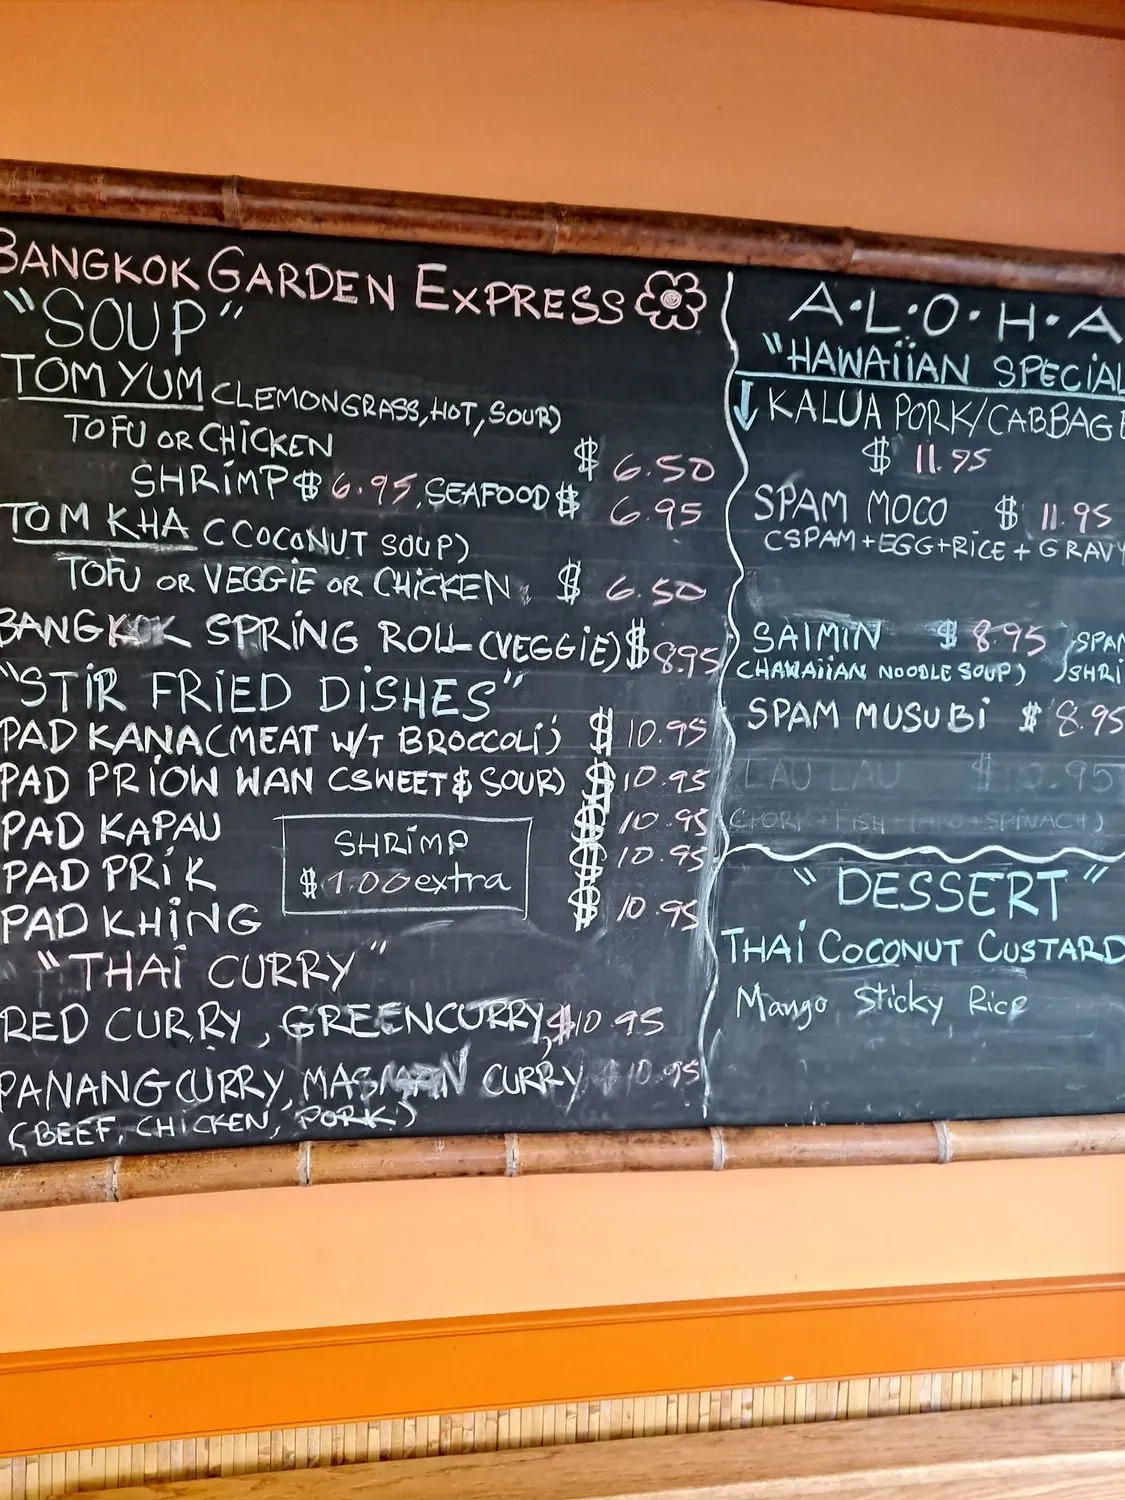 BANGKOK GARDEN EXPRESS
"SOUP"
TOM YUM (LEMONGRASS, HOT, SOUR)
TOFU OR CHICKEN $ 6.50
SHRIMP $ 6.95, SEAFOOD $ 6.95
TOM KHA (COCONUT SOUP)
TOFU OR VEGGIE OR CHICKEN $ 6.50
BANGKOK SPRING ROLL (VEGGIE) $ 8.95
"STIR FRIED DISHES"
PAD KANA (MEAT W/T BROCCOLI) $ 10.95
PAD PRIOW WAN (SWEET $ SOUR) $ 10.95
PAD KAPAU $ 10.95
PAD PRIK $ 10.95
PAD KHING $ 10.95
SHRIMP
$ 1.00 extra
"THAI CURRY"
RED CURRY, GREEN CURRY, $10.95
PANANG CURRY, MASMAN CURRY $10.95
(BEEF, CHICKEN, PORK)
A·L·O·H·A
"HAWAIIAN SPECIAL
↓ KALUA PORK/CABBAGE
$ 11.95
SPAM MOCO $ 11.95
(SPAM+EGG+RICE+GRAVY
SAIMIN $ 8.95
(HAWAIIAN NOODLE SOUP)
SPAM MUSUBI $ 8.95
LAU LAU
"DESSERT"
THAI COCONUT CUSTARD
Mango Sticky Rice